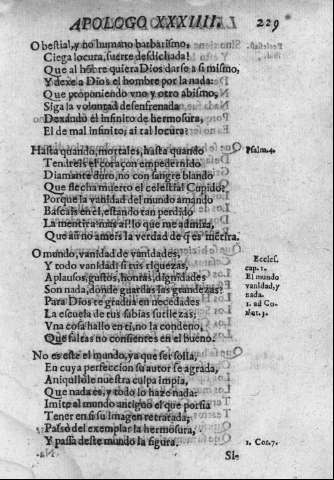 APOLOGO XXXIIII. 229
O bestial, y no humano barbarismo,
Ciega locura, suerte desdichada!
Que al hõbre quiera Dios darse a si mismo,
Y dexe a Dios el hombre por la nada:
Que proponiendo vno y otro abismo,
Siga la voluntad desenfrenada
Dexando el infinito de hermosura,
El de mal infinito, ai tal locura!
Hasta quando, mortales, hasta quando Psalm.4.
Tendreis el coraçon empedernido
Diamante duro, no con sangre blando
Que flecha muerto el celestial Cupido?
Porque la vanidad del mundo amando
Buscais en el, estando tan perdido
La mentira mas ai! lo que me admira,
Que aũ no ameis la verdad de q̃ es mẽtira.
O mundo, vanidad de vanidades, Eccles.
Y todo vanidad! si tus riquezas, cap.1.
Aplausos, gustos, honras, dignidades El mundo
Son nada, donde guardas las grandezas? vanidad, y
Para Dios te gradua en necedades nada.
La escuela de tus sabias sutilezas; 1. ad Co-
Vna cosa hallo en ti, no la condeno,
Que faltas no consientes en el bueno.
No es este el mundo, ya que ser solia,
En cuya perfeccion su autor se agrada,
Aniquilòle nuestra culpa impia,
Que nada es, y todo lo haze nada:
Imite al mundo antiguo el que porfia
Tener en si su imagen retratada,
Passò del exemplar la hermosura,
Y passa deste mundo la figura. 1. Cor.7.
Si-